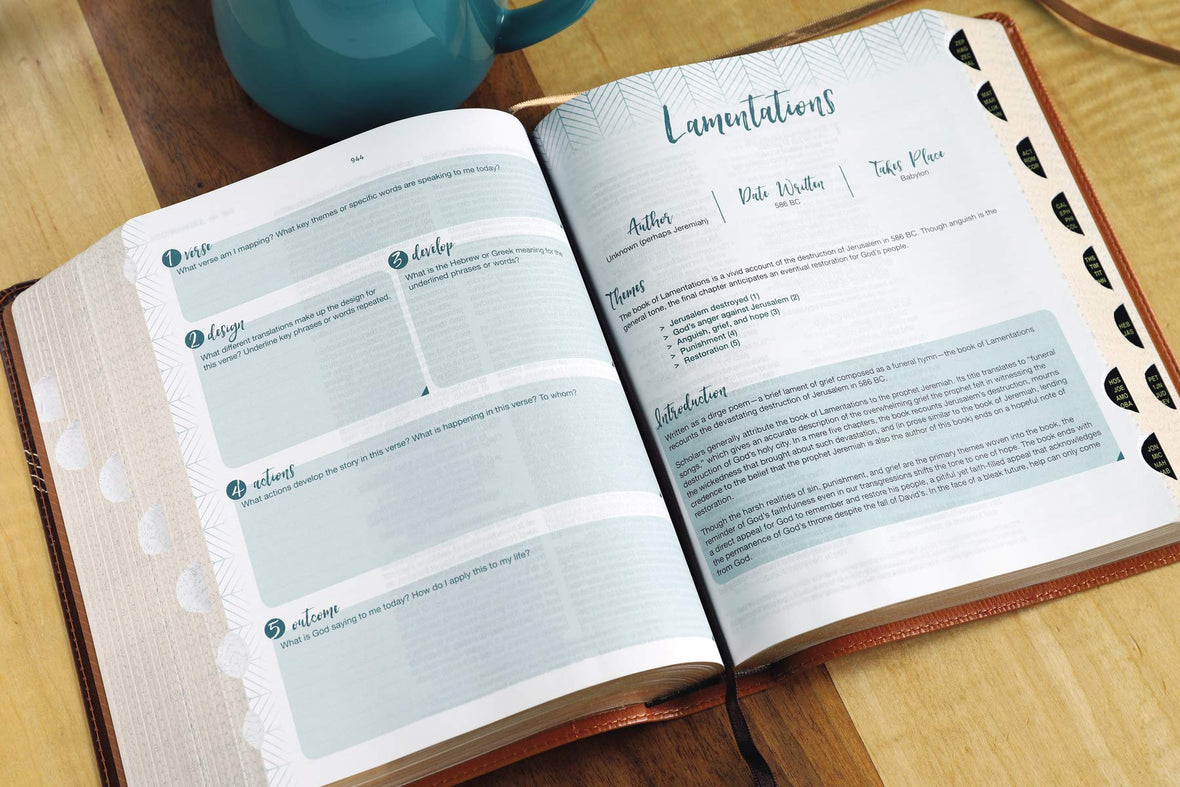 944
1 verse
What verse am I mapping? What key themes or specific words are speaking to me today?
2 design
What different translations make up the design for
this verse? Underline key phrases or words repeated.
3 develop
What is the Hebrew or Greek meaning for the
underlined phrases or words?
4 actions
What actions develop the story in this verse? What is happening in this verse? To whom?
5 outcome
What is God saying to me today? How do I apply this to my life?
Lamentations
Author
Unknown (perhaps Jeremiah)
Date Written
586 BC
Takes Place
Babylon
Themes
The book of Lamentations is a vivid account of the destruction of Jerusalem in 586 BC. Though anguish is the
general tone, the final chapter anticipates an eventual restoration for God's people.
> Jerusalem destroyed (1)
> God's anger against Jerusalem (2)
> Anguish, grief, and hope (3)
> Punishment (4)
> Restoration (5)
Introduction
Written as a dirge poem—a brief lament of grief composed as a funeral hymn—the book of Lamentations
recounts the devastating destruction of Jerusalem in 586 BC.
Scholars generally attribute the book of Lamentations to the prophet Jeremiah. Its title translates to "funeral
songs," which gives an accurate description of the overwhelming grief the prophet felt in witnessing the
destruction of God's holy city. In a mere five chapters, the book recounts Jerusalem's destruction, mourns
the wickedness that brought about such devastation, and (in prose similar to the book of Jeremiah, lending
credence to the belief that the prophet Jeremiah is also the author of this book) ends on a hopeful note of
restoration.
Though the harsh realities of sin, punishment, and grief are the primary themes woven into the book, the
reminder of God's faithfulness even in our transgressions shifts the tone to one of hope. The book ends with
a direct appeal for God to remember and restore his people, a pitiful yet faith-filled appeal that acknowledges
the permanence of God's throne despite the fall of David's. In the face of a bleak future, help can only come
from God.
ZEP
HAG
ZEC
MAL
MAT
MAR
LUK
ACT
ROM
COR
GAL
EPH
PHI
COL
THS
TIM
TIT
HEB
JAS
HOS
JOE
AMO
OBA
PET
JUD
REV
JON
MIC
NAH
HAB